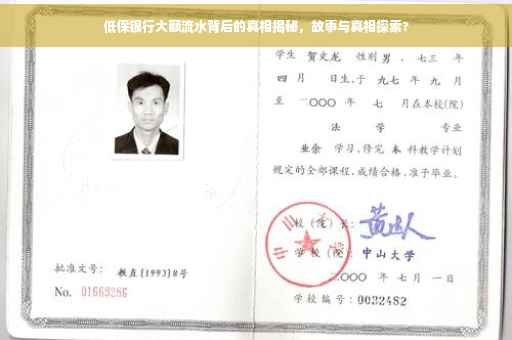 低保银行大额流水背后的真相揭秘，故事与真相探索？
学生 贺文龙 性别 男 、七三 年
四 月 日生,于 九七 年 九 月
至 二〇〇〇 年 七 月在本校(院)
法 学 专业
业余 学习,修完 本 科教学计划
规定的全部课程,成绩合格,准予毕业。
校（院）长:
学校（院）: 中山大学
二〇〇〇 年 七 月 一 日
学校编号: 0032482
批准文号: 教直[1993]8号
No. 01669286